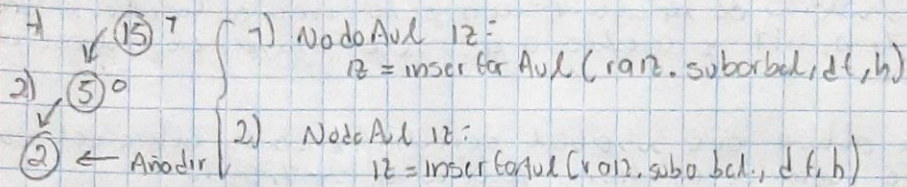 1) 15 1
2) 5 0
2 ← Añadir
1) NodoAvl iz:
iz = insertarAvl(raiz.subarbol, dt, h)
2) NodoAvl iz:
iz = insertarAvl(raiz.subobcl., dt, h)